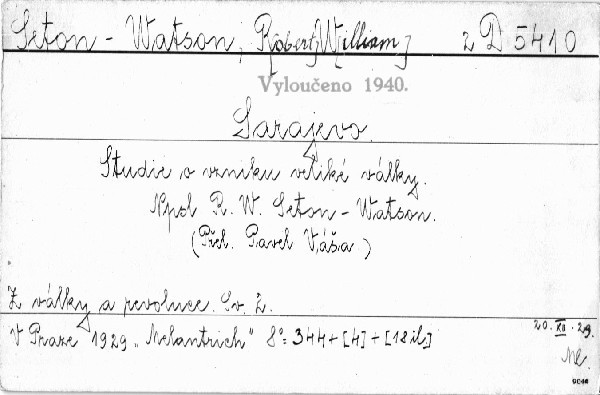 Seton-Watson, R[obert] W[illiam] 2 D 5410
Vyloučeno 1940.
Sarajevo.
Studie o vzniku veliké války.
Npsl R. W. Seton-Watson.
(Přel. Pavel Váša)
Z války a revoluce. Sv. 2.
V Praze 1929 „Melantrich" 8° 344+[4]+[18 il]
20. XII. 29.